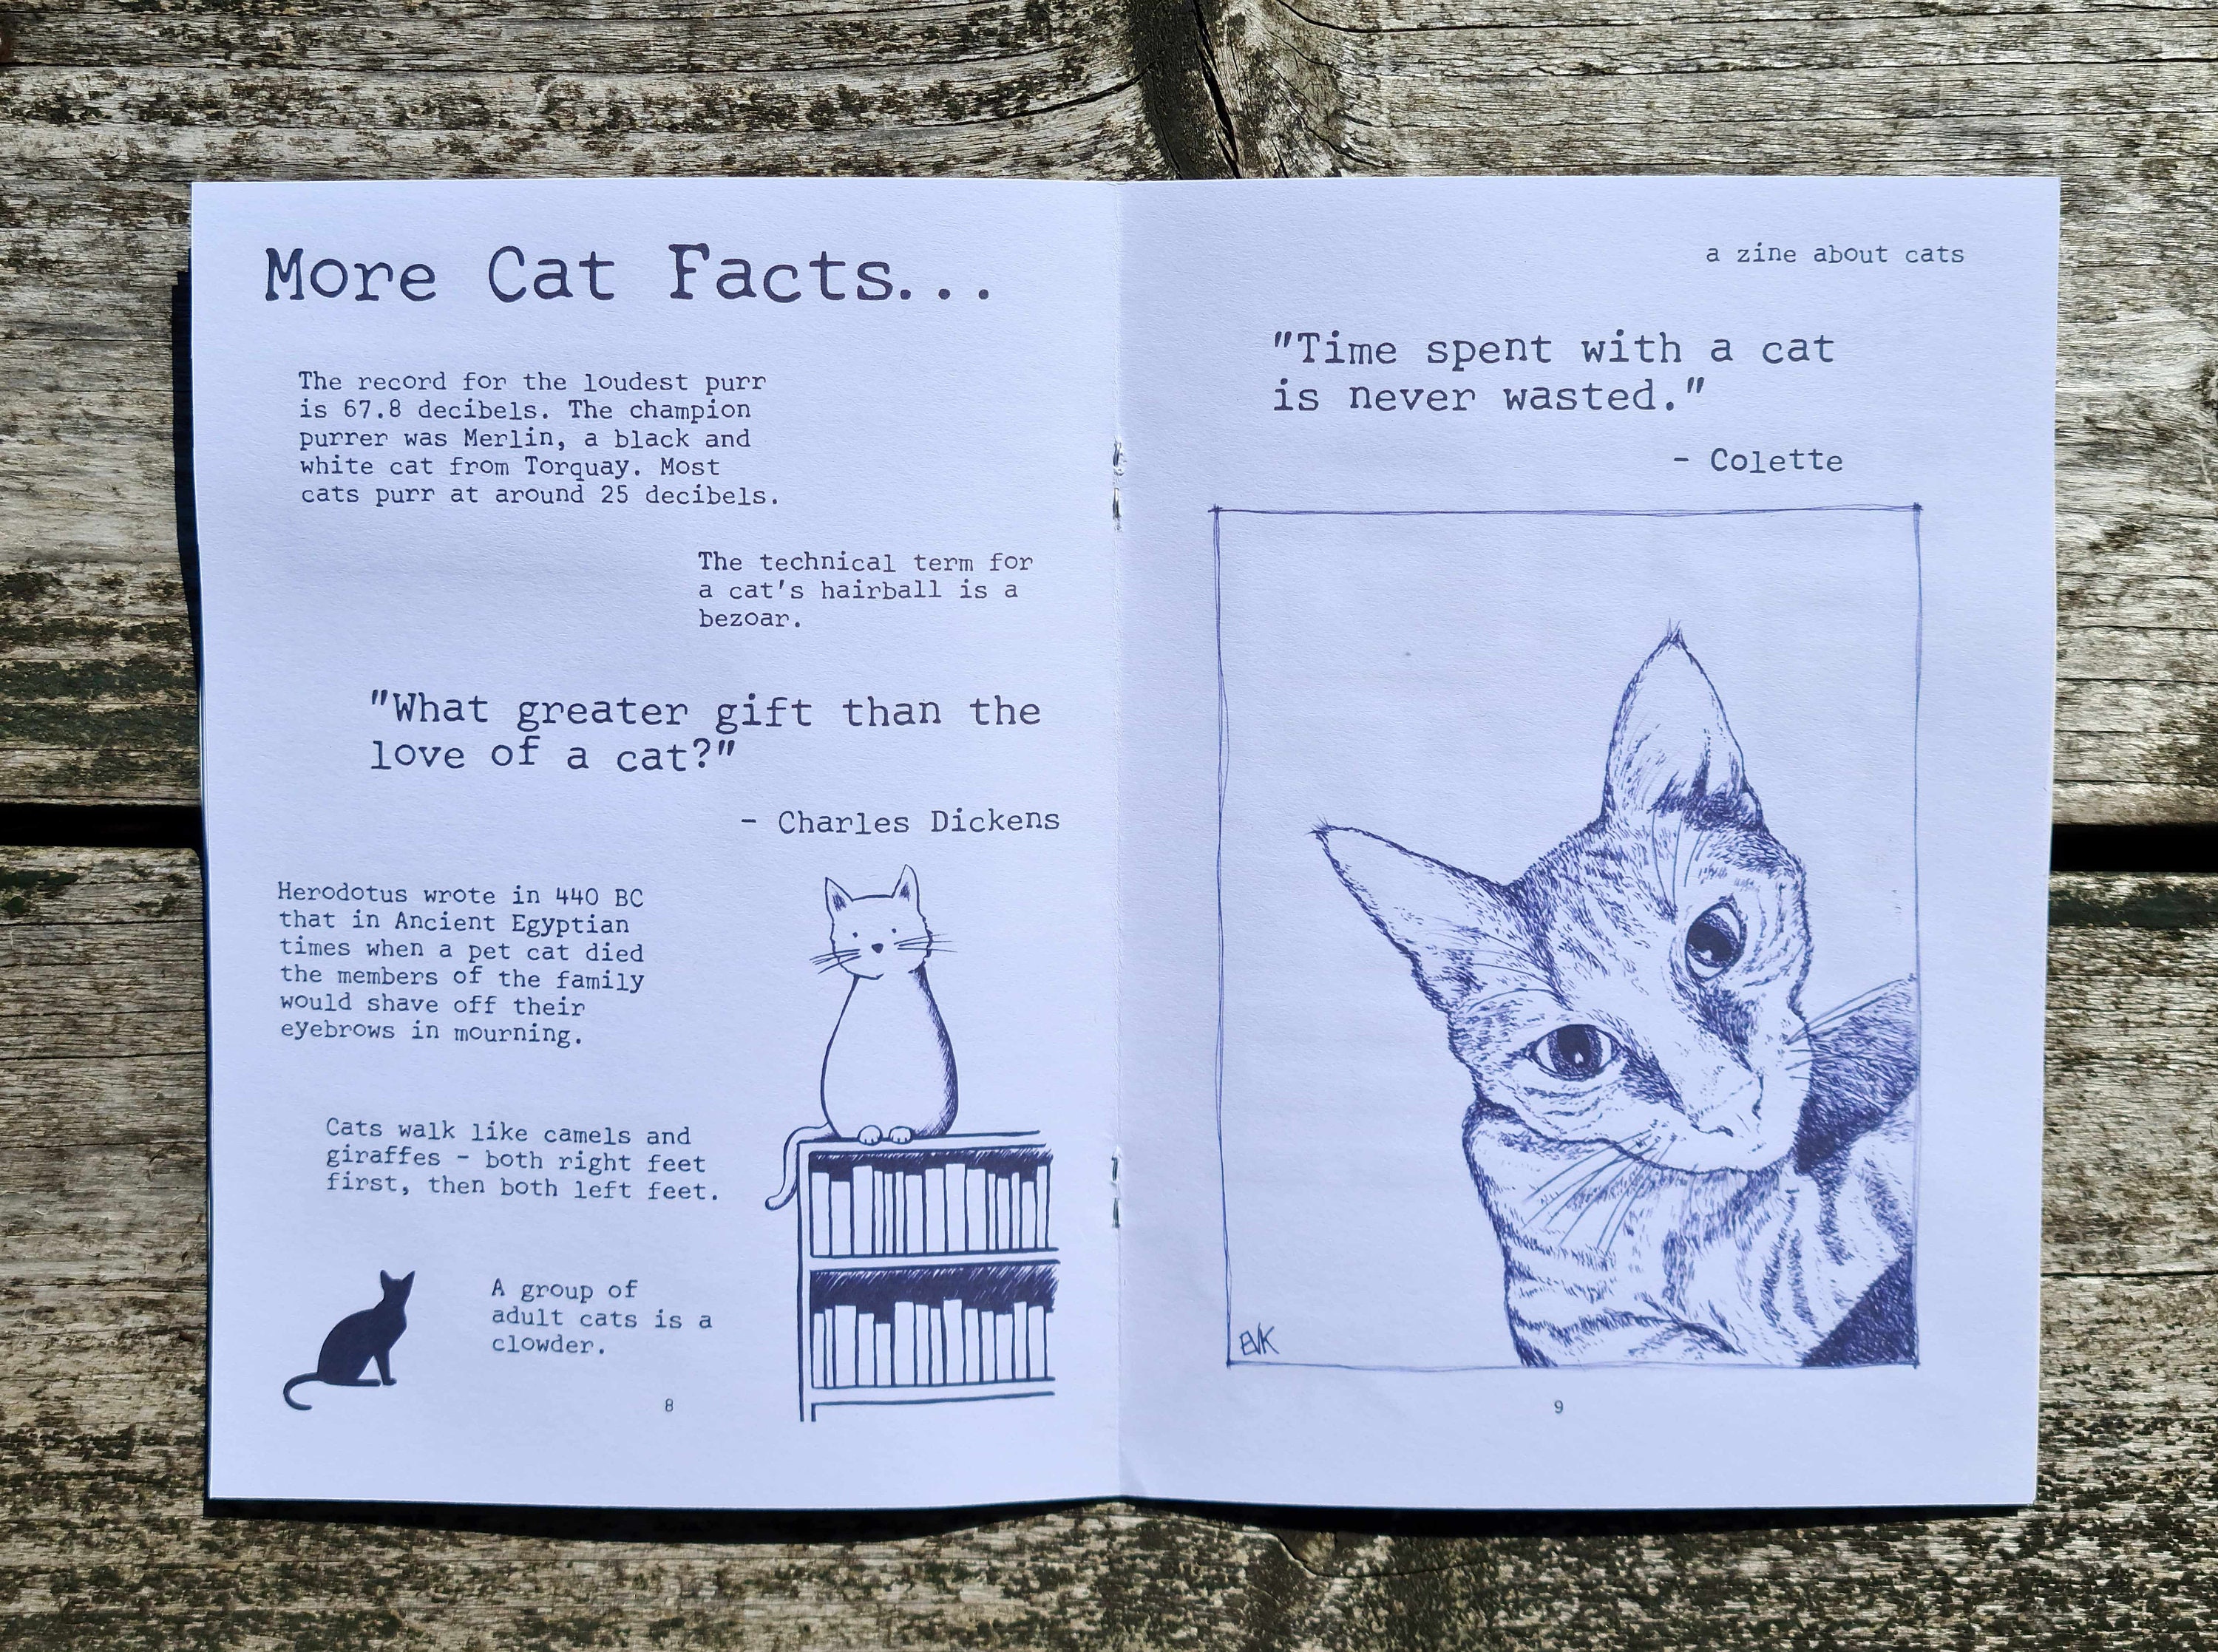 More Cat Facts...
The record for the loudest purr
is 67.8 decibels. The champion
purrer was Merlin, a black and
white cat from Torquay. Most
cats purr at around 25 decibels.
The technical term for
a cat's hairball is a
bezoar.
"What greater gift than the
love of a cat?"
- Charles Dickens
Herodotus wrote in 440 BC
that in Ancient Egyptian
times when a pet cat died
the members of the family
would shave off their
eyebrows in mourning.
Cats walk like camels and
giraffes - both right feet
first, then both left feet.
A group of
adult cats is a
clowder.
8
a zine about cats
"Time spent with a cat
is never wasted."
- Colette
EVK
9